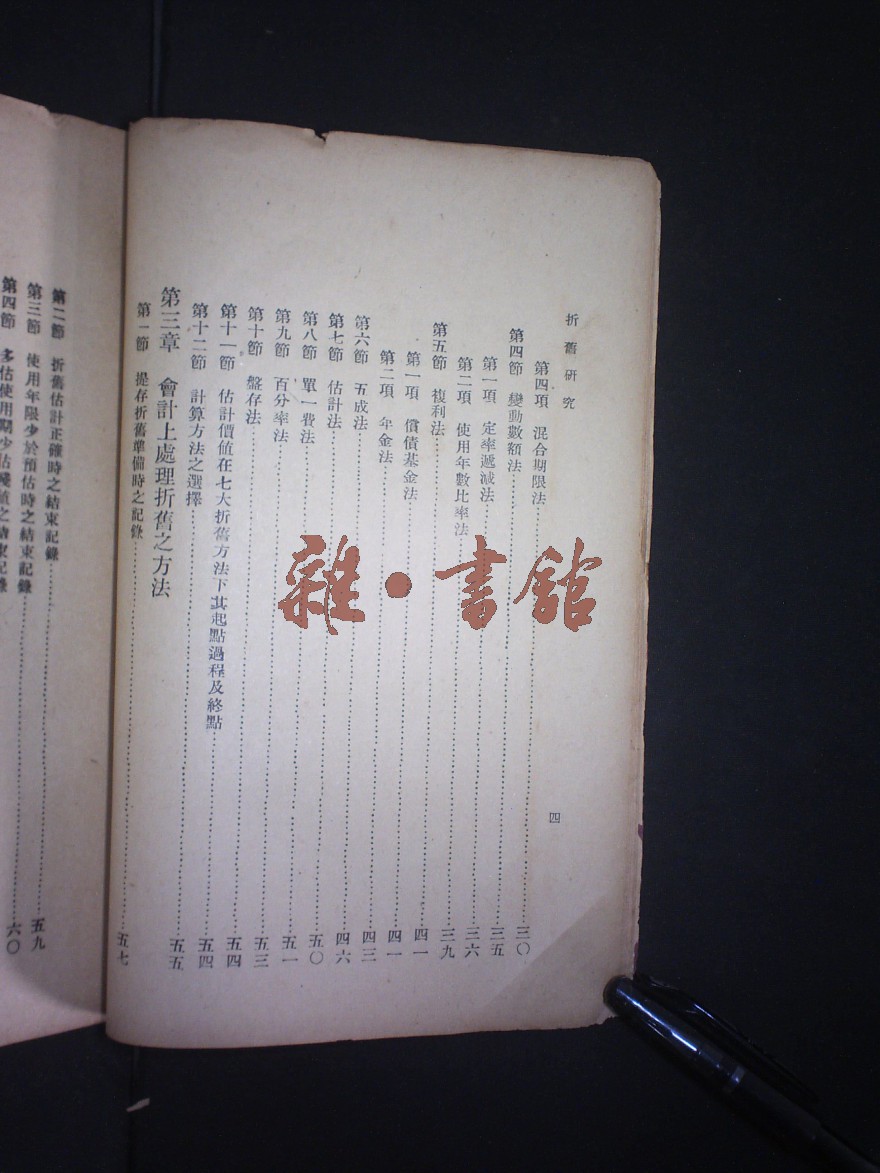 折舊研究
四
第四項 混合期限法……三〇
第四節 變動數額法……三五
第一項 定率遞減法……三六
第二項 使用年數比率法……三九
第五節 複利法……四一
第一項 償債基金法……四一
第二項 年金法……四三
第六節 五成法……四六
第七節 估計法……五〇
第八節 單一費法……五一
第九節 百分率法……五三
第十節 盤存法……五四
第十一節 估計價值在七大折舊方法下其起點過程及終點……五四
第十二節 計算方法之選擇……五五
第三章 會計上處理折舊之方法
第一節 提存折舊準備時之記錄……五七
第二節 折舊估計正確時之結束記錄……五九
第三節 使用年限少於預估時之結束記錄……六〇
第四節 多估使用期少估殘值之結束記錄
雜·書館